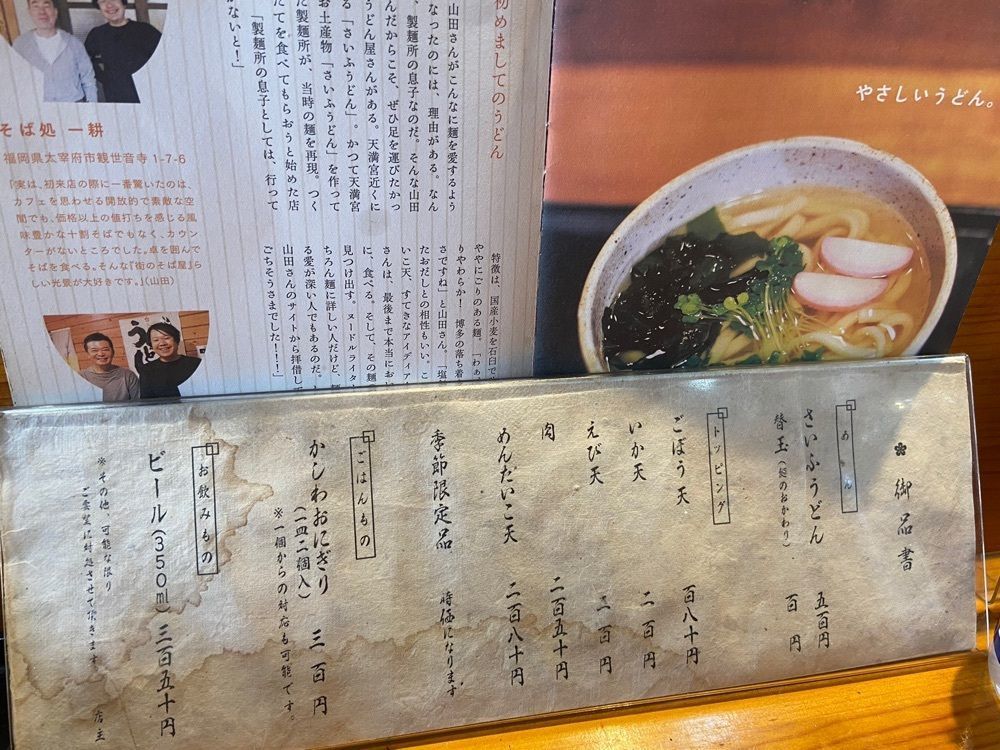 初めましてのうどん
山田さんがこんなに麺を愛するよう
になったのには、理由がある。なん
と、製麺所の息子なのだ。そんな山田
さんだからこそ、ぜひ足を運びたかっ
たうどん屋さんがある。天満宮近くに
ある「さいふうどん」。かつて天満宮
のお土産物「さいふうどん」を作って
いた製麺所が、当時の麺を再現。つく
りたてを食べてもらおうと始めた店
だ。「製麺所の息子としては、行って
おかないと!」
特徴は、国産小麦を石臼で
ややにごりのある麺。「わぁ
りやわらか!博多の落ち着
さですね」と山田さん。塩
たおだしとの相性もいい。こ
いこ天、すてきなアイディア
さんは、最後まで本当におい
に、食べる。そして、その麺
見つけ出す。ヌードルライター
ちろん麺に詳しい人だけど、麺
る愛が深い人でもあるのだ。
山田さんのサイトから拝借して
ごちそうさまでした!!!」
そば処 一耕
福岡県太宰府市観世音寺 1-7-6
「実は、初来店の際に一番驚いたのは、
カフェを思わせる開放的で素敵な空
間でも、価格以上の値打ちを感じる風
味豊かな十割そばでもなく、カウン
ターがないところでした。卓を囲んで
そばを食べる。そんな「街のそば屋」ら
しい光景が大好きです。」(山田)
やさしいうどん。
御品書
めん
さいふうどん 五百円
替玉(麺のおかわり) 百円
トッピング
ごぼう天 百八十円
いか天 二百円
えび天 二百円
肉 二百五十円
めんたいこ天 二百八十円
季節限定品 時価になります
ごはんもの
かしわおにぎり
(一皿二個入) 三百円
※一個からの対応も可能です。
お飲みもの
ビール(350ml) 三百五十円
※その他、可能な限り
ご要望に対処させて頂きます
店主